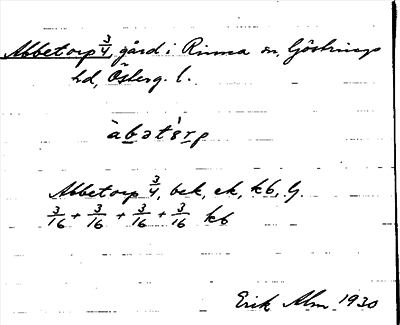 Abbetorp 3/4, gård i Rinna sn, Göstrings
hd, Österg. l.
àbətərp
Abbetorp 3/4, bek, ek, kb, G.
3/16 + 3/16 + 3/16 + 3/16 kb
Erik Alm 1930